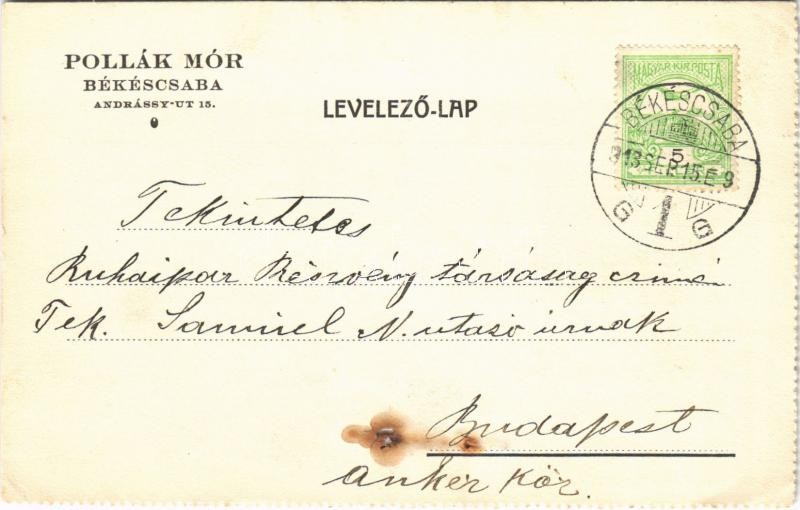 POLLÁK MÓR
BÉKÉSCSABA
ANDRÁSSY-UT 15.
LEVELEZŐ-LAP
MAGYAR KIR. POSTA
5
BÉKÉSCSABA
913 SEP. 15. E 9
G 1 G
Tekintetes
Ruhaipar Részvény társaság czimé
Tek. Samuel N. utazó urnak
Budapest
anker köz.